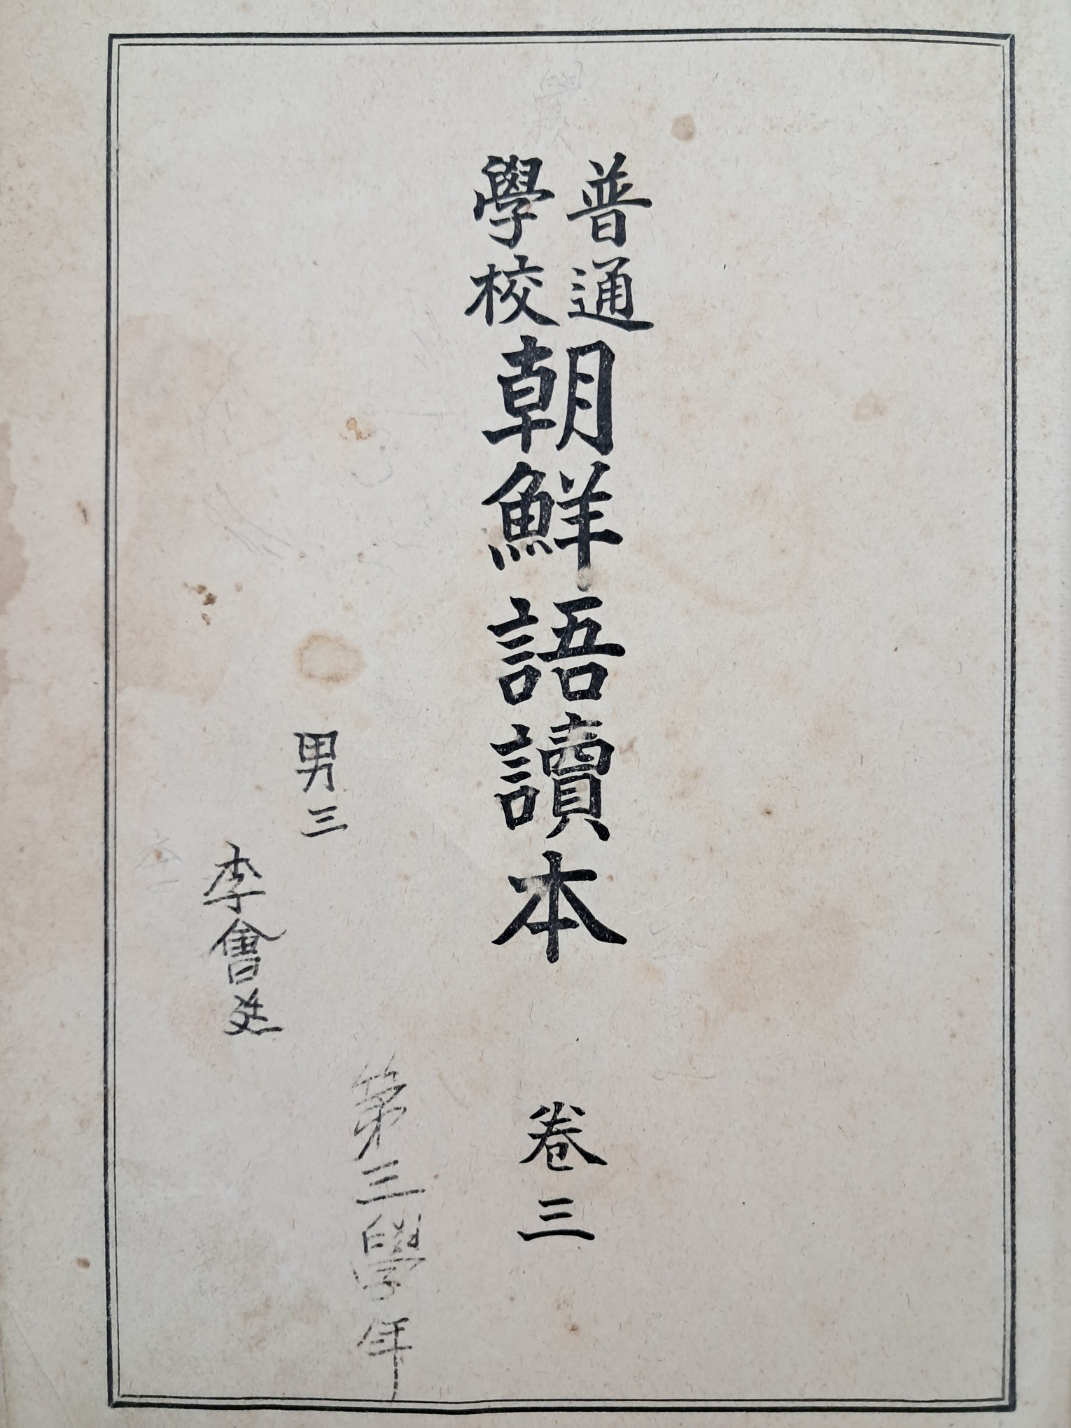 普通
學校
朝鮮語讀本
卷三
男三
李會廷
第三學年